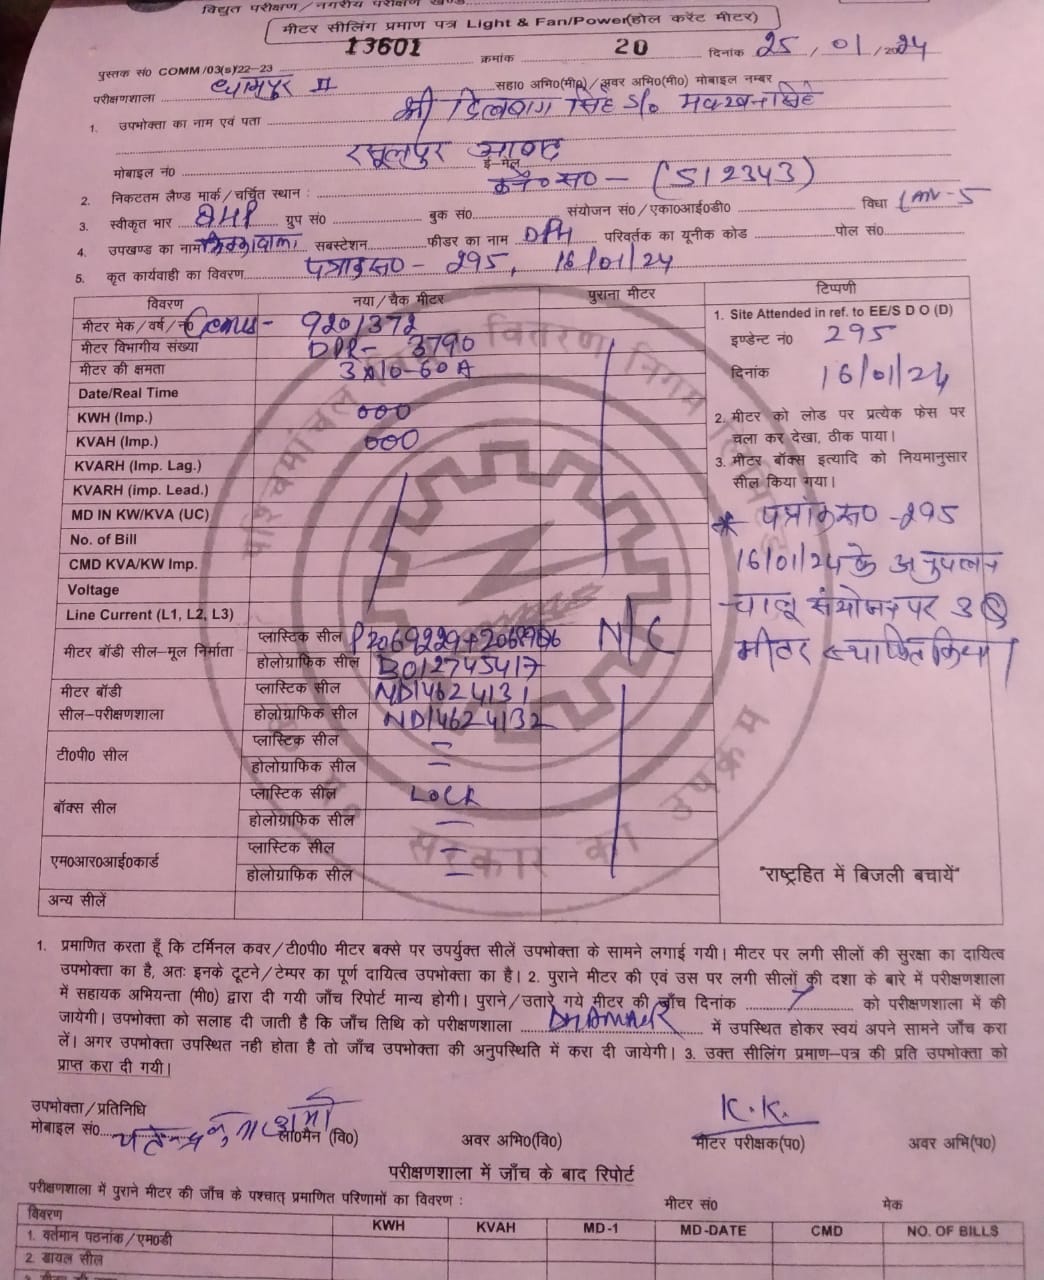 विद्युत परीक्षण/नगरीय परीक्षण खण्ड
मीटर सीलिंग प्रमाण पत्र Light & Fan/Power(होल करेंट मीटर)
पुस्तक सं0 COMM/03(s)/22-23 13601 क्रमांक 20 दिनांक 25/01/2024
परीक्षणशाला धामपुर II सहा0 अभि0(मी0)/अवर अभि0(मी0) मोबाइल नम्बर
1. उपभोक्ता का नाम एवं पता श्री दिलबाग सिंह S/o मक्खन सिंह
रसूलपुर
मोबाइल नं0 ई-मेल
2. निकटतम लैण्ड मार्क/चर्चित स्थान : सं0 - (S12343)
3. स्वीकृत भार 8HP ग्रुप सं0 बुक सं0 संयोजन सं0/एका0आई0डी0 विधा LMV-5
4. उपखण्ड का नाम सबस्टेशन फीडर का नाम DPH परिवर्तक का यूनीक कोड पोल सं0
5. कृत कार्यवाही का विवरण पत्रांक सं0 - 295, 16/01/24
विवरण नया/चैक मीटर पुराना मीटर टिप्पणी
मीटर मेक/वर्ष/नं0 Genus - 9201372
मीटर विभागीय संख्या DPR- 3790
मीटर की क्षमता 3x10-60A
Date/Real Time
KWH (Imp.) 000
KVAH (Imp.) 000
KVARH (Imp. Lag.)
KVARH (imp. Lead.)
MD IN KW/KVA (UC)
No. of Bill
CMD KVA/KW Imp.
Voltage
Line Current (L1, L2, L3)
मीटर बॉडी सील-मूल निर्माता प्लास्टिक सील P2069229+ N/C
होलोग्राफिक सील B012745417
मीटर बॉडी सील-परीक्षणशाला प्लास्टिक सील ND14624131
होलोग्राफिक सील ND14624132
टी0पी0 सील प्लास्टिक सील
होलोग्राफिक सील
बॉक्स सील प्लास्टिक सील LOCK
होलोग्राफिक सील
एम0आर0आई0कार्ड प्लास्टिक सील
होलोग्राफिक सील
अन्य सीलें
1. Site Attended in ref. to EE/S D O (D)
इण्डेन्ट नं0 295
दिनांक 16/01/24
2. मीटर को लोड पर प्रत्येक फेस पर
चला कर देखा, ठीक पाया।
3. मीटर बॉक्स इत्यादि को नियमानुसार
सील किया गया।
* पत्रांक सं0 - 295
16/01/24 के अनुपालन
चालू संयोजन पर 3
मीटर स्थापित किया।
"राष्ट्रहित में बिजली बचायें"
पश्चिमांचल विद्युत वितरण निगम लिमिटेड
उ0 प्र0 सरकार का उपक्रम
1. प्रमाणित करता हूँ कि टर्मिनल कवर/टी0पी0 मीटर बक्से पर उपर्युक्त सीलें उपभोक्ता के सामने लगाई गयी। मीटर पर लगी सीलों की सुरक्षा का दायित्व
उपभोक्ता का है, अतः इनके टूटने/टेम्पर का पूर्ण दायित्व उपभोक्ता का है। 2. पुराने मीटर की एवं उस पर लगी सीलों की दशा के बारे में परीक्षणशाला
में सहायक अभियन्ता (मी0) द्वारा दी गयी जाँच रिपोर्ट मान्य होगी। पुराने/उतारे गये मीटर की जाँच दिनांक को परीक्षणशाला में की
जायेगी। उपभोक्ता को सलाह दी जाती है कि जाँच तिथि को परीक्षणशाला में उपस्थित होकर स्वयं अपने सामने जाँच करा
लें। अगर उपभोक्ता उपस्थित नही होता है तो जाँच उपभोक्ता की अनुपस्थिति में करा दी जायेगी। 3. उक्त सीलिंग प्रमाण-पत्र की प्रति उपभोक्ता को
प्राप्त करा दी गयी।
उपभोक्ता/प्रतिनिधि K.K.
मोबाइल सं0 ला0मैन (वि0) अवर अभि0(वि0) मीटर परीक्षक(प0) अवर अभि(प0)
परीक्षणशाला में जाँच के बाद रिपोर्ट
परीक्षणशाला में पुराने मीटर की जाँच के पश्चात् प्रमाणित परिणामों का विवरण : मीटर सं0 मेक
विवरण KWH KVAH MD-1 MD-DATE CMD NO. OF BILLS
1. वर्तमान पठनांक/एम0डी
2. डायल सील